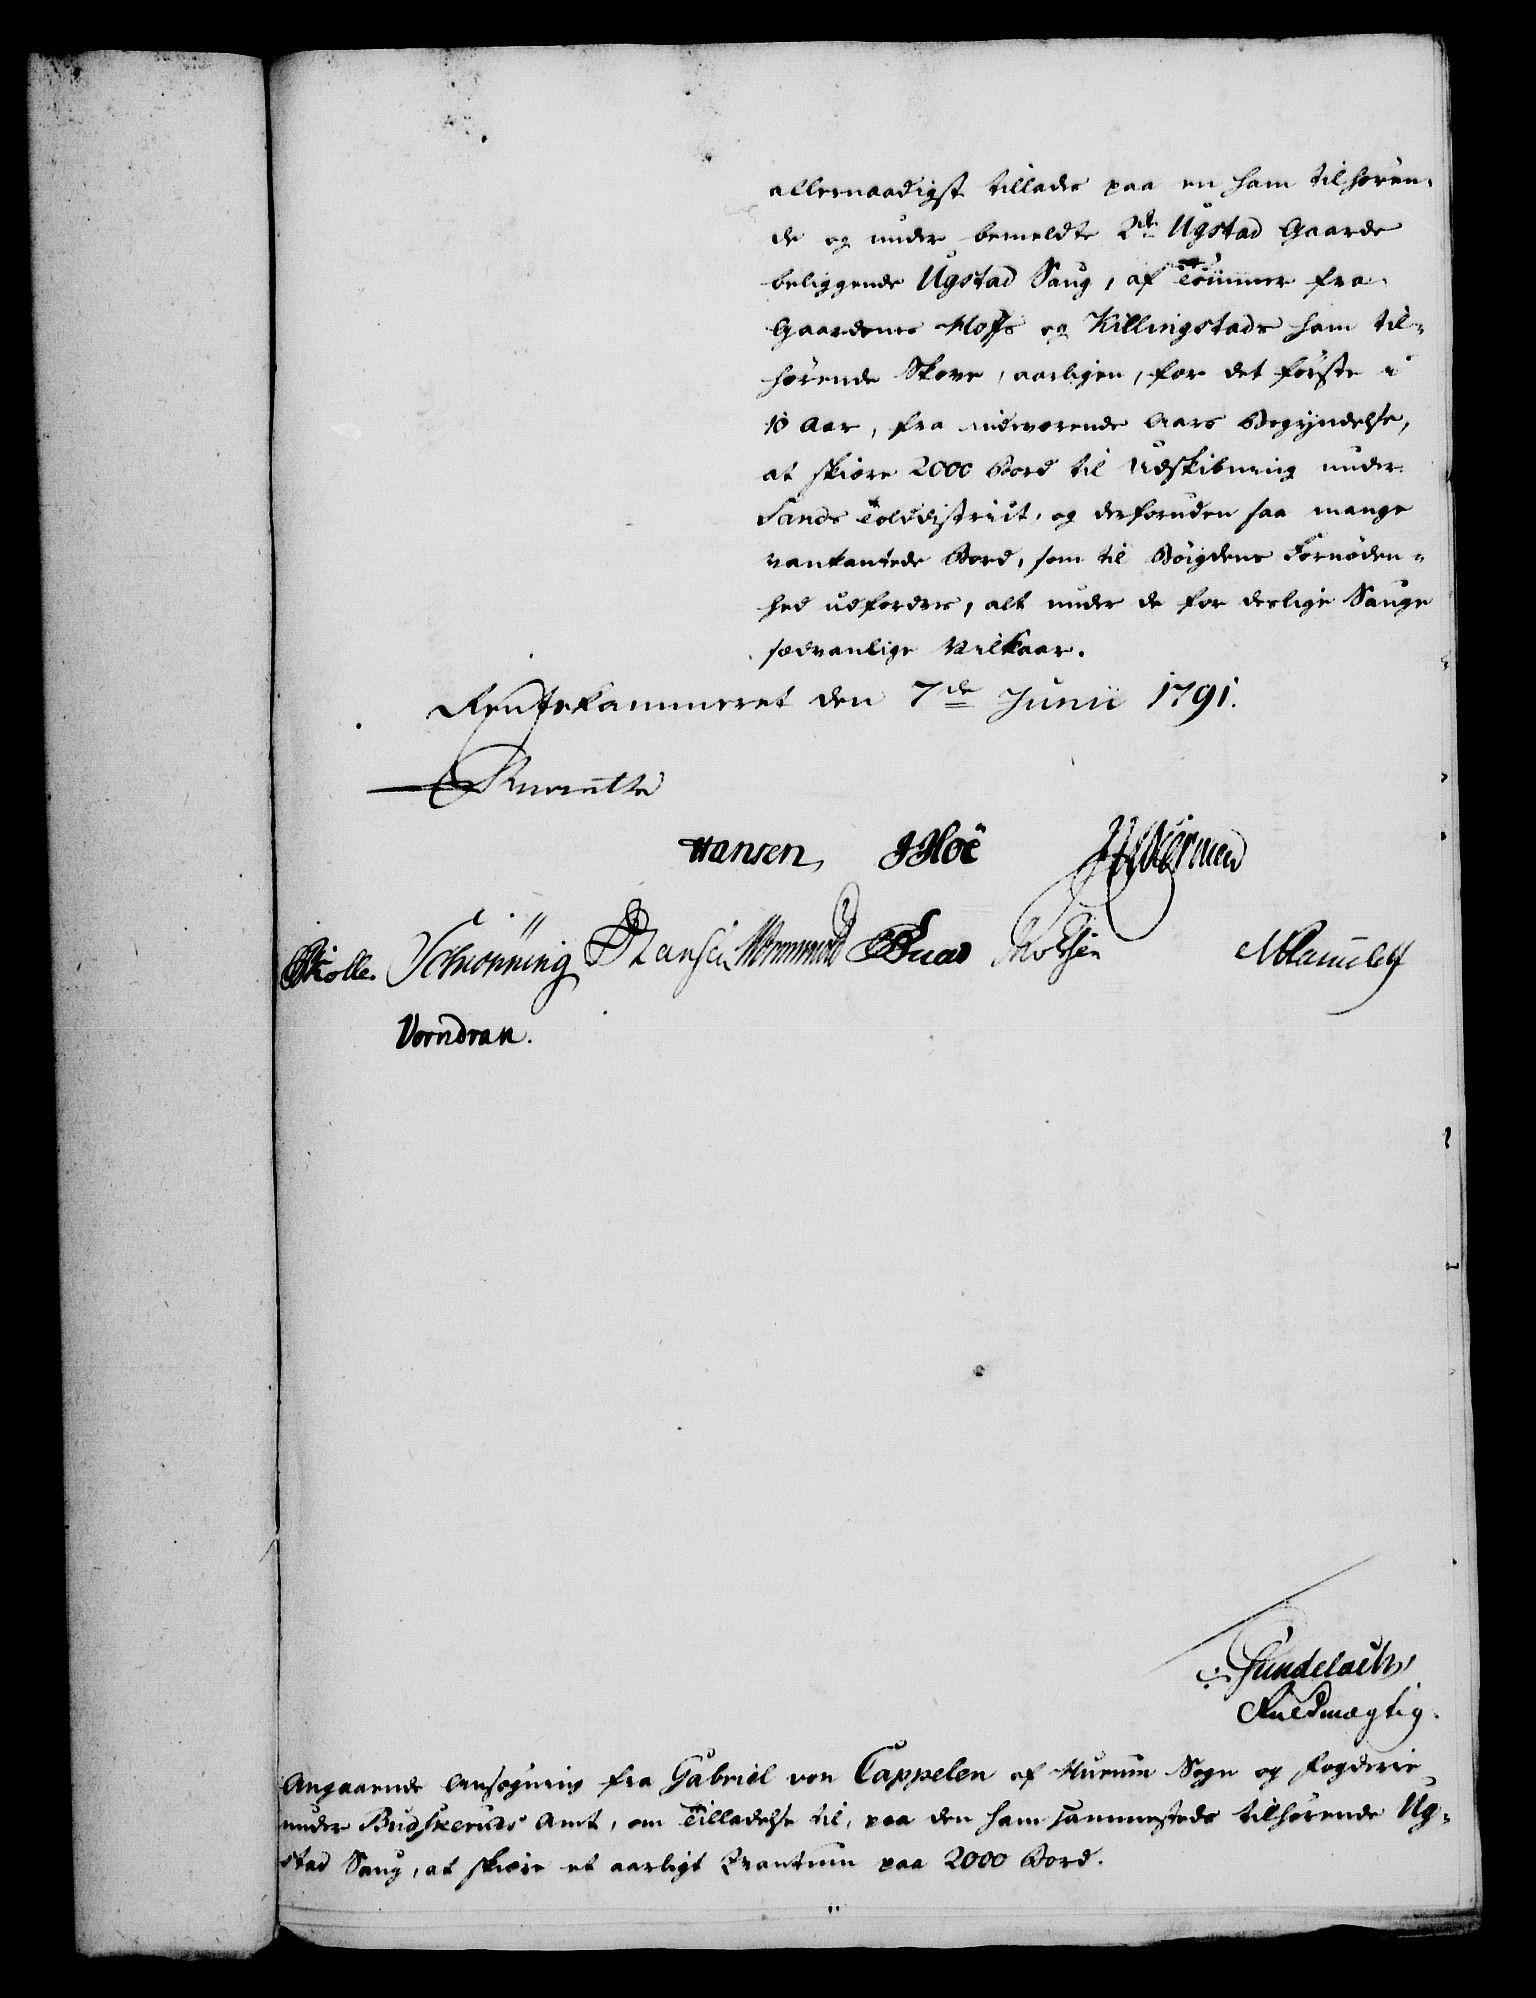 allernaadigst tillades paa en ham tilhøren-
de og under bemeldte 2de Ugstad Gaarde
beliggende Ugstad Saug, af Tømmer fra
Gaardenes Moss og Killingstads ham til-
hørende Skove, aarligen, for det første i
10 Aar, fra indeværende Aars Begyndelse,
at skiære 2000 Bord til Udskibning under
Sands Tolddistrict, og desforuden saa mange
vankantede Bord, som til Bøigdens Fornøden-
hed udfordres, alt under de for deslige Sauge
sædvanlige Vilkaar.
Rentekammeret den 7de Junii 1791.
Hansen JHoë
Schiønning Hansen
Vorndran.
Gundelach,
Fuldmægtig.
Angaaende Ansøgning fra Gabriel von Cappelen af Hurum Sogn og Fogderie
under Budskeruds Amt, om Tilladelse til, paa den ham sammesteds tilhørende Ug-
stad Saug, at skiære et aarligt Qvantum paa 2000 Bord.